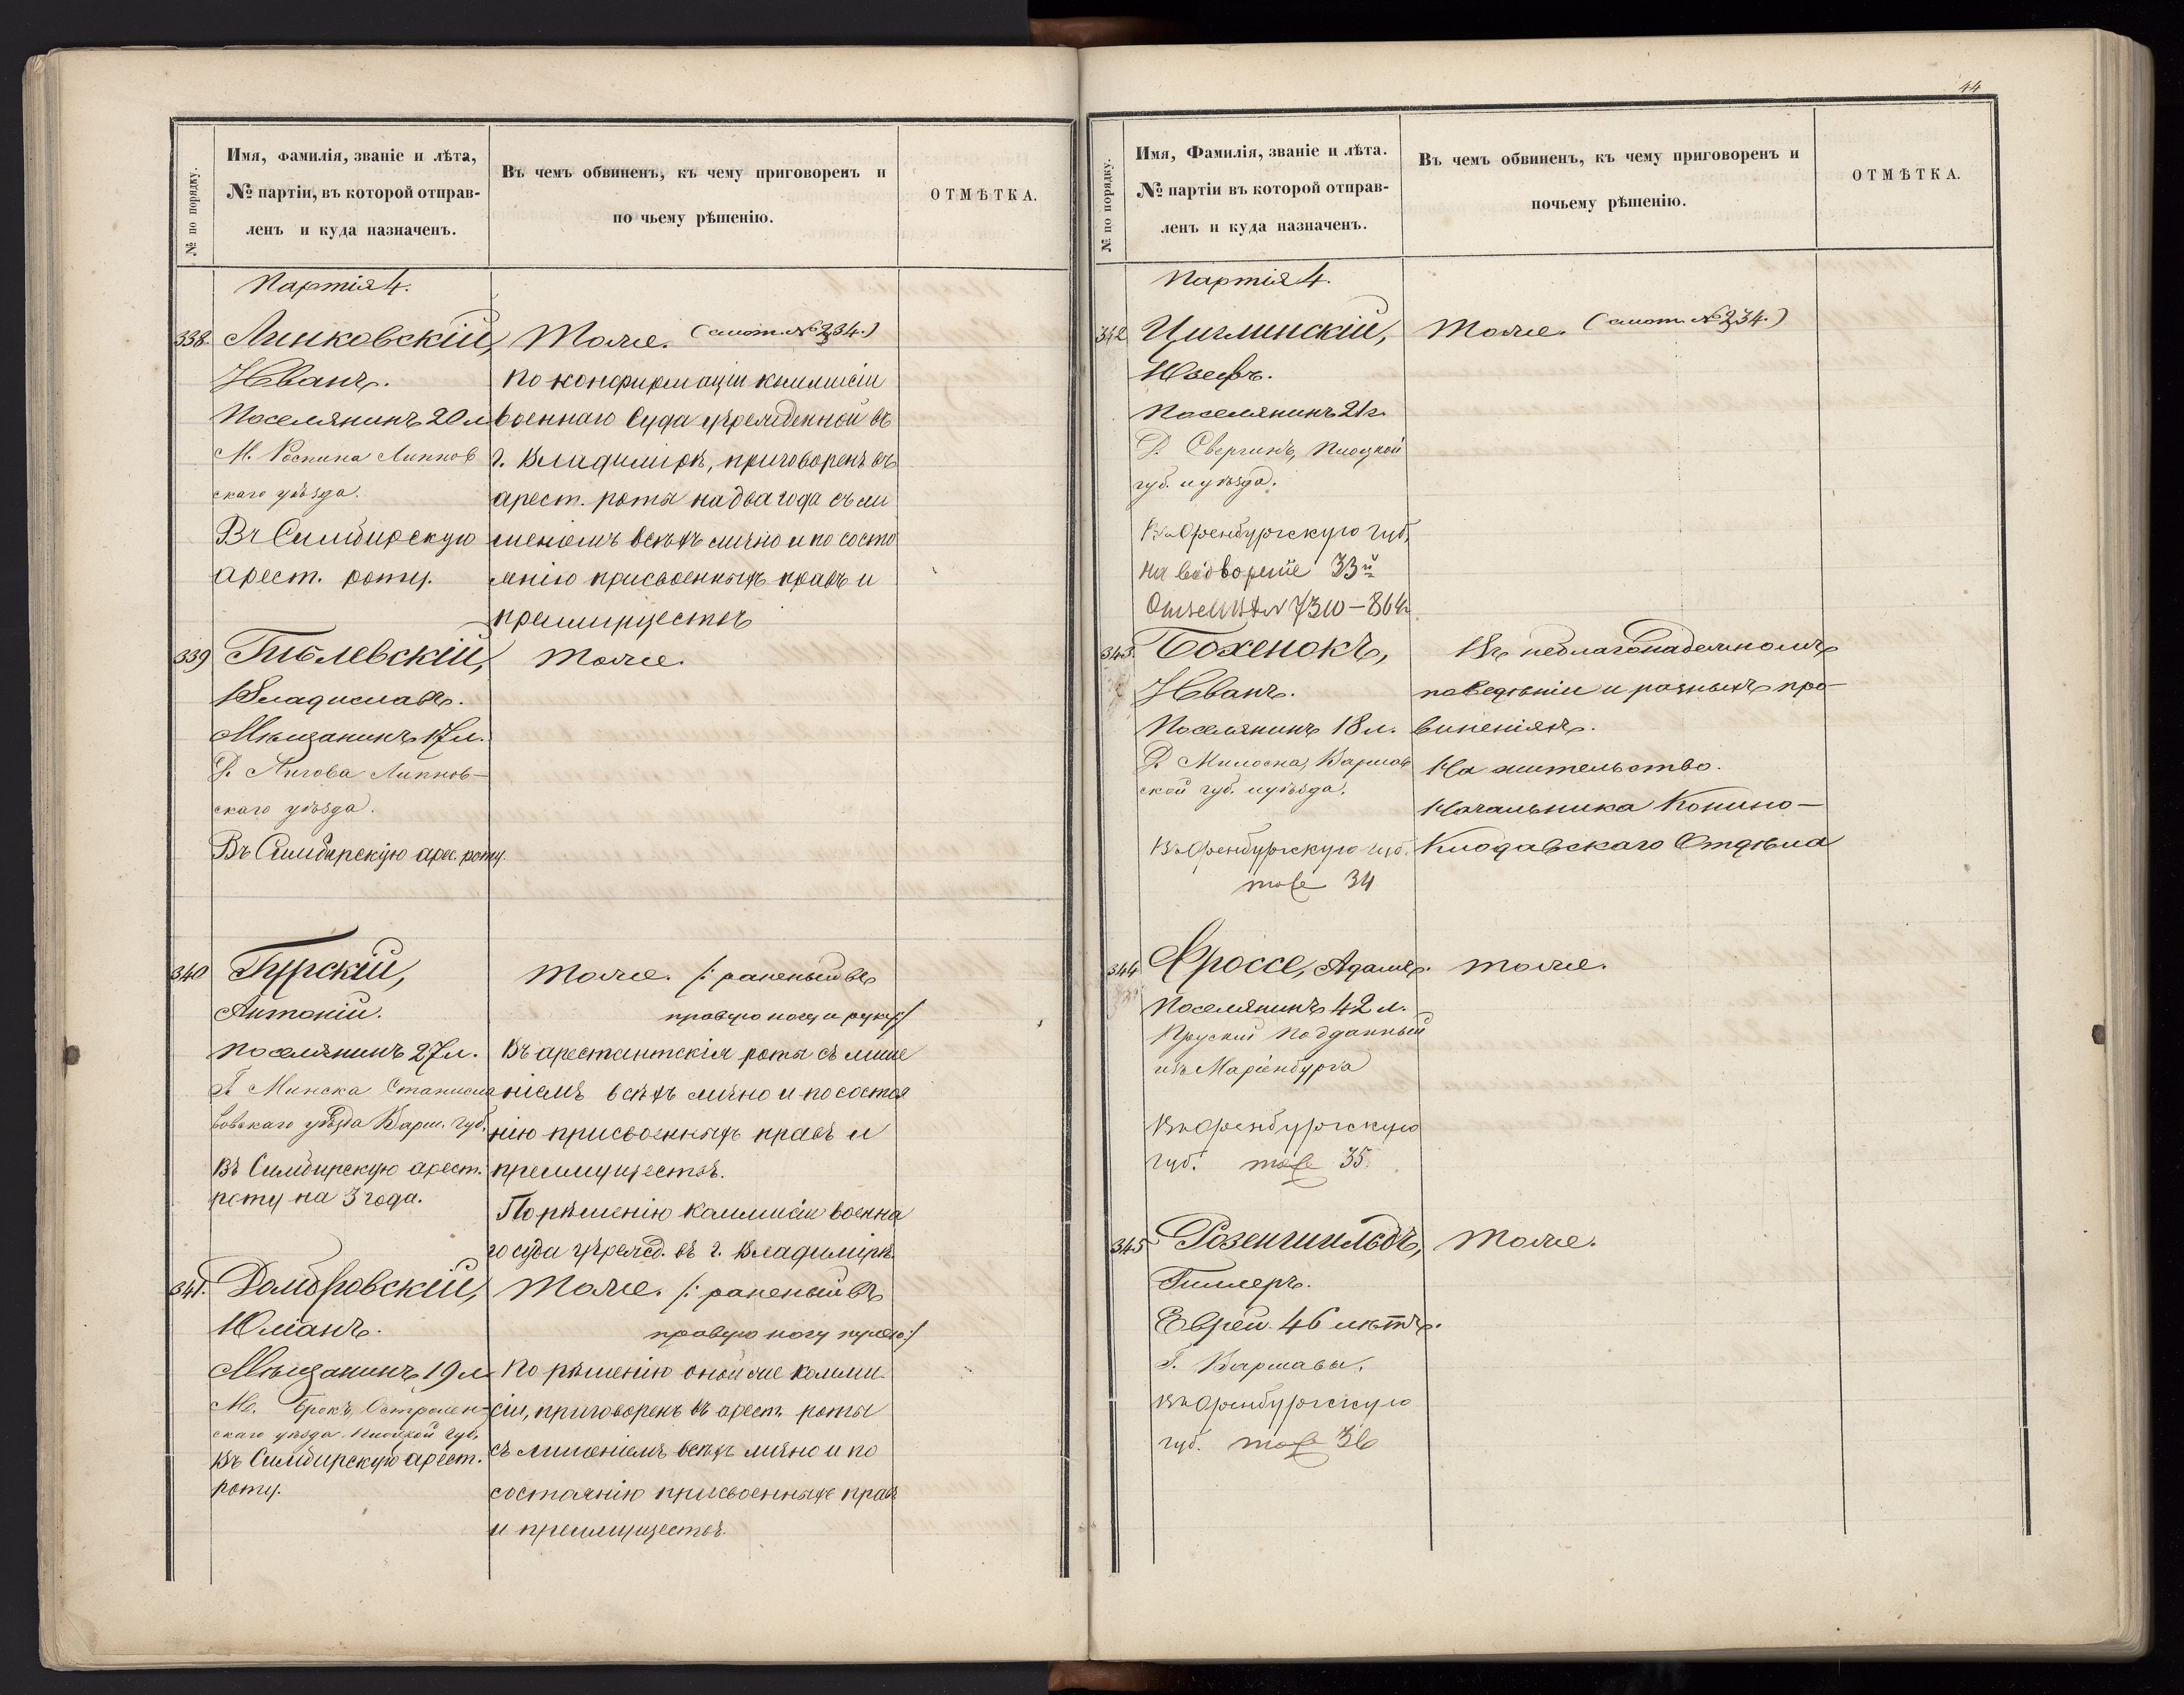 № по порядку.
Имя, фамилія, званіе и лѣта,
№ партіи, въ которой отправ-
ленъ и куда назначенъ.
Въ чемъ обвиненъ, къ чему приговоренъ и
по чьему рѣшенію.
ОТМѢТКА.
Партія 4.
338. Линковскій,
Иванъ.
Поселянинъ 20 л
М. Липнов
скаго уѣзда.
Въ Симбирскую
арест. роту.
Тоже. (смот. № 234.)
По конфирмаціи коммисіи
военнаго суда учрежденной въ
г. Владимірѣ, приговоренъ въ
арест. роты на два года съ ли
шеніемъ всѣхъ лично и по состо
янію присвоенныхъ правъ и
преимуществъ
339 Гиблевскій,
Владиславъ.
Мѣщанинъ 17 л.
Д. Лигова Липнов-
скаго уѣзда.
Въ Симбирскую арес. роту.
Тоже.
340 Гурскій,
Антоній.
Поселянинъ 27 л.
Г. Минска Станисла
вовскаго уѣзда Варш. губ.
Въ Симбирскую арест.
роту на 3 года.
Тоже. /: раненый въ
правую ногу и руку :/
Въ арестантскія роты съ лише
ніемъ всѣхъ лично и по состоя
нію присвоенныхъ правъ и
преимуществъ.
По рѣшенію коммисіи военна
го суда учрежд. въ г. Владимірѣ.
341. Домбровскій,
Юліанъ.
Мѣщанинъ 19 л
М. Брокъ, Остролен-
скаго уѣзда Плоцкой губ.
Въ Симбирскую арест.
роту.
Тоже. /: раненый въ
правую ногу пулею :/
По рѣшенію оной же комми-
сіи, приговоренъ въ арест. роты
съ лишеніемъ всѣхъ лично и по
состоянію присвоенныхъ правъ
и преимуществъ.
44
№ по порядку.
Имя, Фамилія, званіе и лѣта.
№ партіи въ которой отправ-
ленъ и куда назначенъ.
Въ чемъ обвиненъ, къ чему приговоренъ и
почьему рѣшенію.
ОТМѢТКА.
Партія 4.
342 Циглинскій,
Юзефъ.
Поселянинъ 21 г.
Д. Свергинъ, Плоцкой
губ. и уѣзда.
Въ Оренбургскую губ.
на водвореніе 33й
7310 – 864
Тоже. (смот. № 234.)
343. Бохенокъ,
Иванъ.
Поселянинъ 18 л.
Д. Милосна, Варшав
ской губ. и уѣзда.
Въ Оренбургскую губ.
тоже 34
Въ неблагонадежномъ
поведеніи и разныхъ про-
виненіяхъ.
На жительство.
Начальника Конино-
Клодавскаго Отдѣла
344 Фроссе, Адамъ.
Поселянинъ 42 л.
Прускій подданный
изъ Маріенбурга
Въ Оренбургскую
губ. тоже 35.
Тоже.
345 Розеншильдъ,
Гиллеръ.
Еврей 46 лѣтъ.
Г. Варшавы.
Въ Оренбургскую
губ. тоже 36
Тоже.